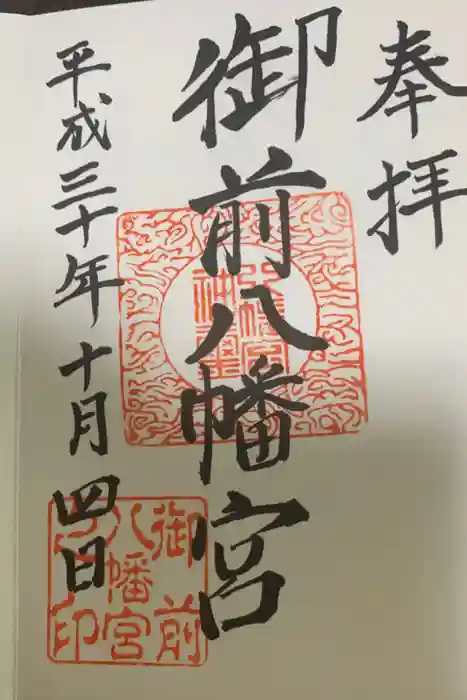 奉拝
御前八幡宮
平成三十年十月四日
御前
八幡宮